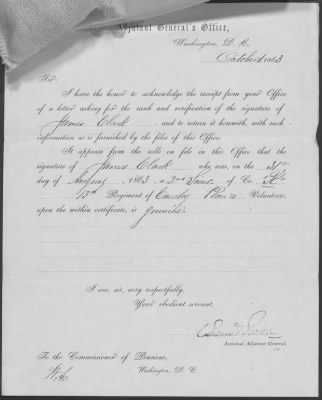 Adjutant General's Office,
Washington, D. C.
October 1863
Sir:
I have the honor to acknowledge the receipt from your Office
of a letter asking for the rank and verification of the signature of
James Clark and to return it herewith, with such
information as is furnished by the files of this Office.
It appears from the rolls on file in this Office that the
signature of James Clark who was on the 31st
day of August, 1863, a 2nd Lieut of Co.
13th Regiment of Cavalry Volunteers,
upon the within certificate, is genuine.
I am, sir, very respectfully,
Your obedient servant,
Assistant Adjutant General.
To the Commissioner of Pensions,
Washington, D. C.